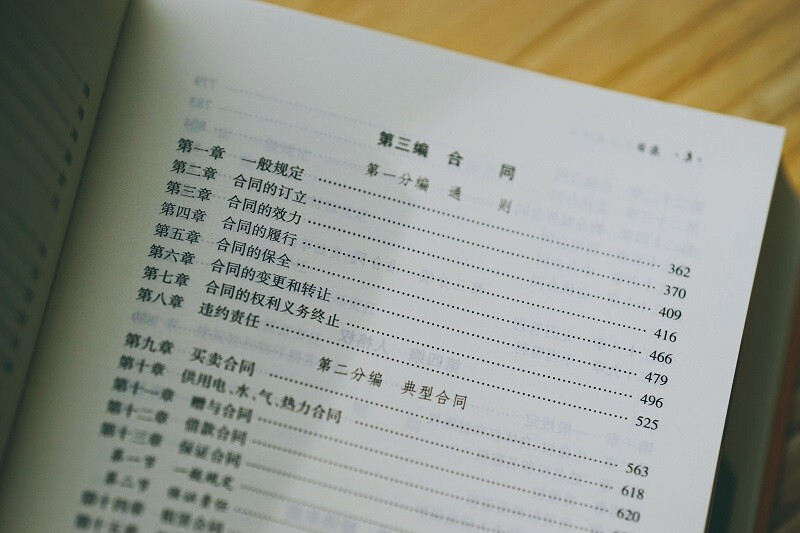 目录 · 3 ·
第三编 合 同
第一分编 通 则
第一章 一般规定 362
第二章 合同的订立 370
第三章 合同的效力 409
第四章 合同的履行 416
第五章 合同的保全 466
第六章 合同的变更和转让 479
第七章 合同的权利义务终止 496
第八章 违约责任 525
第二分编 典型合同
第九章 买卖合同 563
第十章 供用电、水、气、热力合同 618
第十一章 赠与合同 620
第十二章 借款合同
第十三章 保证合同
第一节 一般规定
第二节 保证责任
第十四章 租赁合同
第十五章